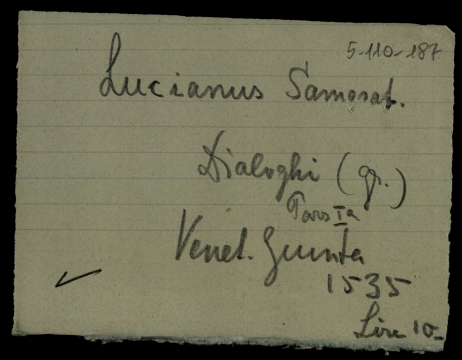 5-110-187
Lucianus Samosat.
Dialoghi (gr.)
Pars Ia
Venet. Giunta
1535
Lire 10-